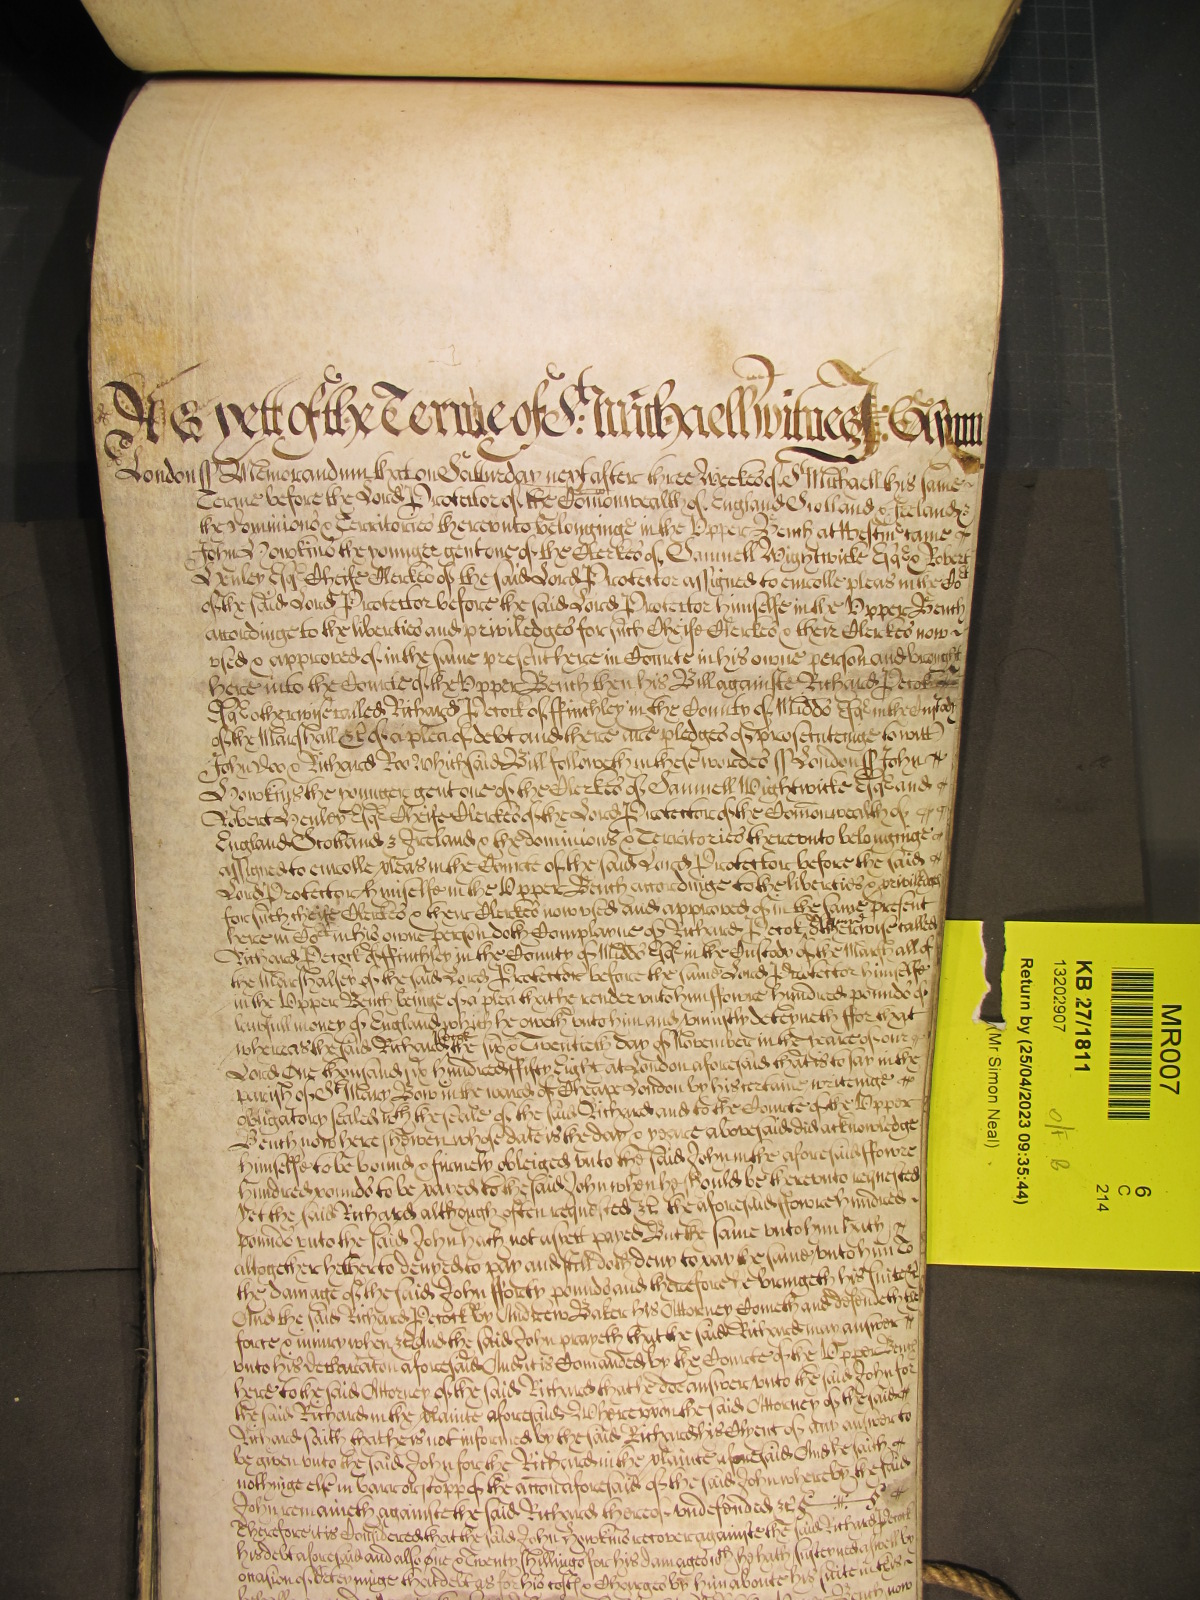 As yett of the Terme of St. Michaell witnes J: Glynn
London ss Memorandum that on Satturday next after three Weekes of St Michaell this same
Terme before the Lord Protector of the Comonwealth of England Scotland & Ireland &
the dominions & Territories thereunto belonginge in the Upper Bench at Westm came
John Howkins the younger gent one of the Clerkes of Samuell Wightwicke Esqr & Robert
Henley Esqr Cheife Clerkes of the said Lord Protector assigned to enrolle pleas in the Cort
of the said Lord Protector before the said Lord Protector himselfe in the Upper Bench
accordinge to the liberties and priviledges for such Cheife Clerkes & their Clerkes now
used & approved of in the same present here in Courte in his owne person and brought
here into the Courte of the Upper Bench then his Bill againste Richard Pecock
Esqr otherwise called Richard Pecock of Ffinchley in the County of Midds Esqr in the Custody
of the Marshall &c of a plea of debt and there are pledges of prosecutinge to witt
John Doo & Richard Roo Which said Bill followeth in these wordes ss London ss John
Howkins the younger gent one of the Clerkes of Samuell Wightwicke Esqr and
Robert Henley Esqr Cheife Clerkes of the Lord Protector of the Comonwealth of
England Scotland & Ireland & the dominions & Territories thereunto belonginge
assigned to enrolle pleas in the Courte of the said Lord Protector before the said
Lord Protector himselfe in the Upper Bench accordinge to the liberties & priviledges
for such cheife Clerkes & their Clerkes now used and approved of in the same present
here in Cort in his owne person doth Complayne of Richard Pecock Esqr otherwise called
Richard Pecock of Ffinchley in the County of Midds Esqr in the Custody of the Marshall of
the Marshalsey of the said Lord Protector before the said Lord Protector himselfe
in the Upper Bench beinge of a plea that he render unto him ffowre hundred pounds of
lawfull money of England which he oweth unto him and uniustly deteyneth ffor that
whereas the said Richard Pecock the six & Twentieth day of November in the yeare of our
Lord One thousand six hundred ffifty Eight at London aforesaid that is to say in the
parish of St Mary Bow in the ward of Cheape London by his certaine writeinge
obligatory sealed wth the seale of the said Richard and to the Courte of the Upper
Bench now here shewen whose date is the day & yeare abovesaid did acknowledge
himselfe to be bound & firmely obleiged unto the said John in the aforesaid ffowre
hundred pounds to be payed to the said John when he should be thereunto requested
Yet the said Richard although often requested &c the aforesaid ffowre hundred
pounds unto the said John hath not as yett payed But the same unto him hath
altogether hetherto denyed to pay and still doth deny to pay the same unto him To
the damage of the said John fforty pounds and therefore he bringeth his suite &c
And the said Richard Pecock by Andrew Baker his Attorney Cometh and defendeth the
force & iniury when &c And the said John prayeth that the said Richard may answer
unto his declaration aforesaid And it is Comanded by the Courte of the Upper Bench
here to the said Attorney of the said Richard that he doe answer unto the said John for
the said Richard in the plainte aforesaid Whereupon the said Attorney of the said
Richard saith that he is not informed by the said Richard his Clyent of any answer to
be given unto the said John for the Richard in the plainte aforesaid And he saith
nothinge else in barr or stopp of the action aforesaid of the said John whereby the said
John remaineth againste the said Richard thereof undefended &c
Therefore it is Considered that the said John Howkins recover againste the said Richard Pecock
his debt aforesaid and also one & Twenty shillings for his damages wch he hath susteyned aswell by
occasion of deteyninge that debt as for his costs & Charges by him aboute his suite in this
MR007
6
C
214
KB 27/1811
13202907
Return by (25/04/2023 09:35:44)
(Mr Simon Neal)
o/t B